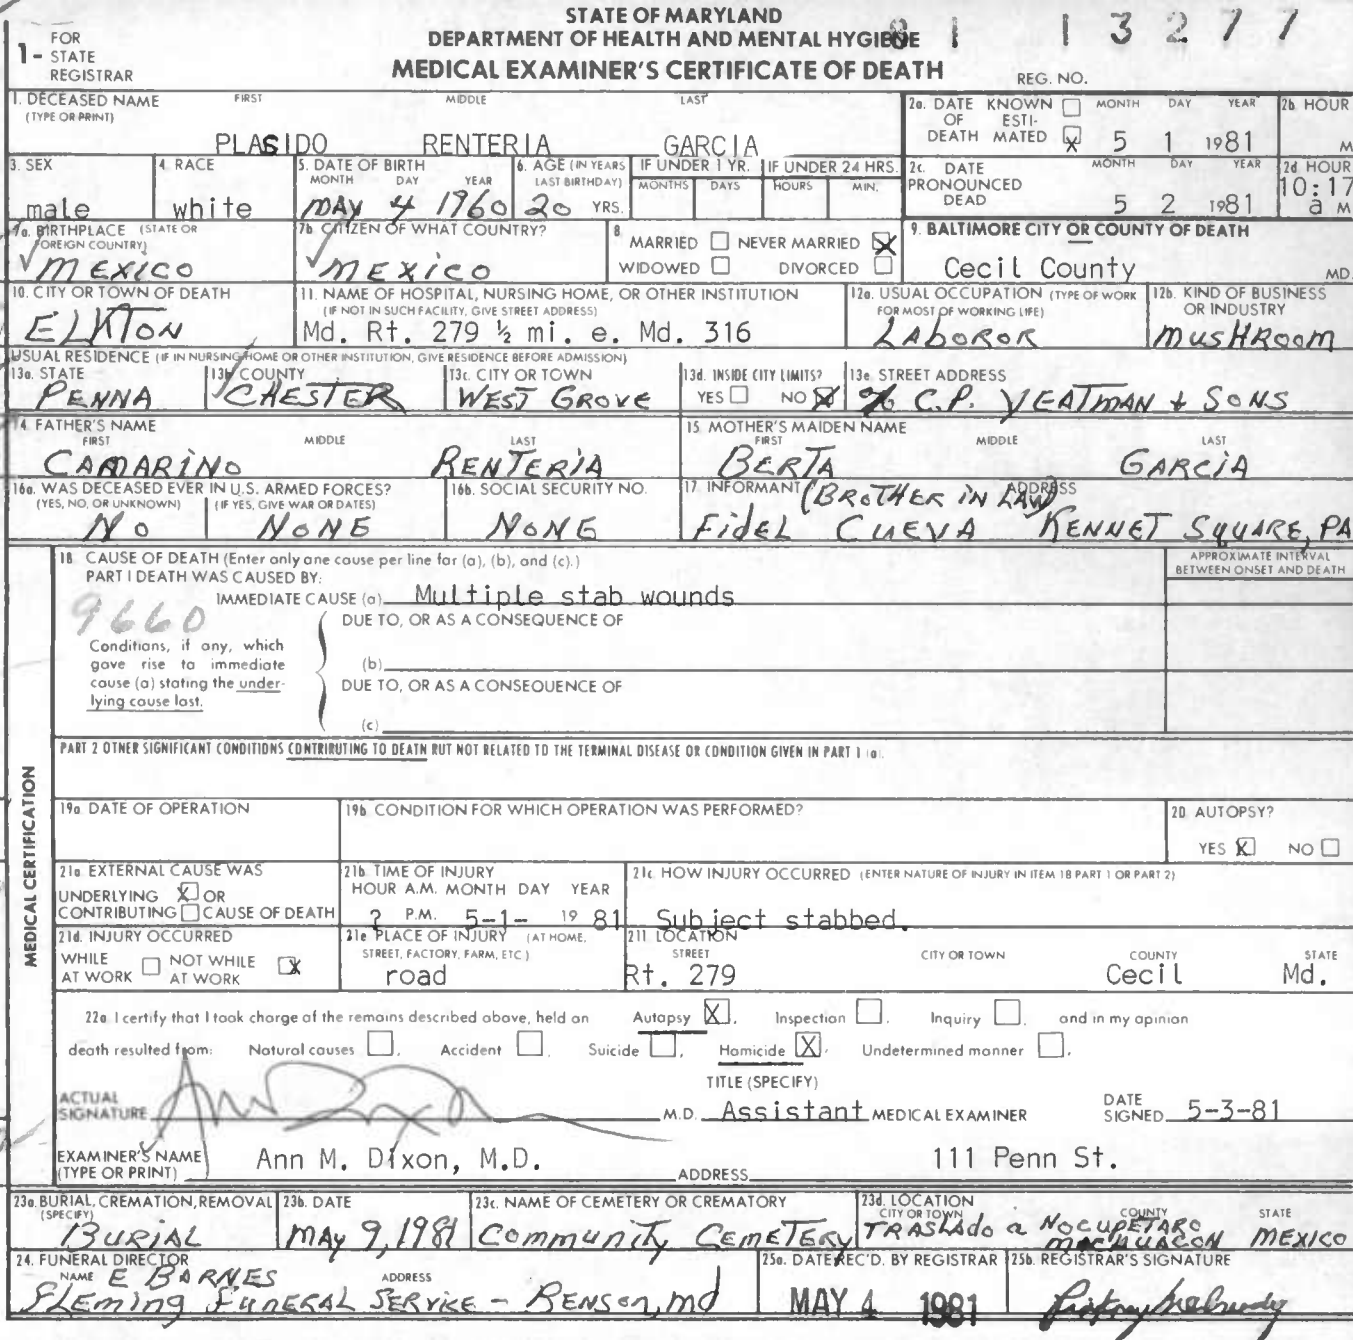 STATE OF MARYLAND
DEPARTMENT OF HEALTH AND MENTAL HYGIENE
MEDICAL EXAMINER'S CERTIFICATE OF DEATH
1- FOR STATE REGISTRAR
81 13277
REG. NO.
1. DECEASED NAME (TYPE OR PRINT) FIRST MIDDLE LAST
PLASIDO RENTERIA GARCIA
2a. DATE OF DEATH KNOWN ☐ ESTIMATED ☒ MONTH DAY YEAR 5 1 1981
2b. HOUR M
3. SEX male
4. RACE white
5. DATE OF BIRTH MONTH DAY YEAR MAY 4 1960
6. AGE (IN YEARS LAST BIRTHDAY) 20 YRS.
IF UNDER 1 YR. MONTHS DAYS
IF UNDER 24 HRS. HOURS MIN.
2c. DATE PRONOUNCED DEAD MONTH DAY YEAR 5 2 1981
2d HOUR 10:17 a M
7a. BIRTHPLACE (STATE OR FOREIGN COUNTRY) MEXICO
7b. CITIZEN OF WHAT COUNTRY? MEXICO
8. MARRIED ☐ NEVER MARRIED ☒
WIDOWED ☐ DIVORCED ☐
9. BALTIMORE CITY OR COUNTY OF DEATH
Cecil County MD.
10. CITY OR TOWN OF DEATH
ELKTON
11. NAME OF HOSPITAL, NURSING HOME, OR OTHER INSTITUTION
(IF NOT IN SUCH FACILITY, GIVE STREET ADDRESS)
Md. Rt. 279 ½ mi. e. Md. 316
12a. USUAL OCCUPATION (TYPE OF WORK FOR MOST OF WORKING LIFE)
LABOROR
12b. KIND OF BUSINESS OR INDUSTRY
MUSHROOM
USUAL RESIDENCE (IF IN NURSING HOME OR OTHER INSTITUTION, GIVE RESIDENCE BEFORE ADMISSION)
13a. STATE PENNA
13b. COUNTY CHESTER
13c. CITY OR TOWN WEST GROVE
13d. INSIDE CITY LIMITS? YES ☐ NO ☒
13e. STREET ADDRESS % C.P. YEATMAN + SONS
14. FATHER'S NAME FIRST MIDDLE LAST
CAMARINO RENTERIA
15. MOTHER'S MAIDEN NAME FIRST MIDDLE LAST
BERTA GARCIA
16a. WAS DECEASED EVER IN U.S. ARMED FORCES?
(YES, NO, OR UNKNOWN) (IF YES, GIVE WAR OR DATES)
NO NONE
16b. SOCIAL SECURITY NO.
NONE
17. INFORMANT ADDRESS
(BROTHER IN LAW)
FIDEL CUEVA KENNET SQUARE, PA
MEDICAL CERTIFICATION
18. CAUSE OF DEATH (Enter only one cause per line for (a), (b), and (c).)
APPROXIMATE INTERVAL BETWEEN ONSET AND DEATH
PART I DEATH WAS CAUSED BY:
IMMEDIATE CAUSE (a) Multiple stab wounds
9660
DUE TO, OR AS A CONSEQUENCE OF
Conditions, if any, which gave rise to immediate cause (a) stating the underlying cause last.
(b)
DUE TO, OR AS A CONSEQUENCE OF
(c)
PART 2 OTHER SIGNIFICANT CONDITIONS CONTRIBUTING TO DEATH BUT NOT RELATED TO THE TERMINAL DISEASE OR CONDITION GIVEN IN PART 1 (a).
19a. DATE OF OPERATION
19b. CONDITION FOR WHICH OPERATION WAS PERFORMED?
20. AUTOPSY?
YES ☒ NO ☐
21a. EXTERNAL CAUSE WAS
UNDERLYING ☒ OR
CONTRIBUTING ☐ CAUSE OF DEATH
21b. TIME OF INJURY
HOUR A.M. MONTH DAY YEAR
? P.M. 5-1- 19 81
21c. HOW INJURY OCCURRED (ENTER NATURE OF INJURY IN ITEM 18 PART 1 OR PART 2)
Subject stabbed.
21d. INJURY OCCURRED
WHILE AT WORK ☐ NOT WHILE AT WORK ☒
21e PLACE OF INJURY (AT HOME, STREET, FACTORY, FARM, ETC.)
road
21f. LOCATION STREET CITY OR TOWN COUNTY STATE
Rt. 279 Cecil Md.
22a. I certify that I took charge of the remains described above, held an Autopsy ☒, Inspection ☐, Inquiry ☐, and in my opinion
death resulted from: Natural causes ☐, Accident ☐, Suicide ☐, Homicide ☒, Undetermined manner ☐.
TITLE (SPECIFY)
ACTUAL SIGNATURE Ann Dixon M.D. Assistant MEDICAL EXAMINER DATE SIGNED 5-3-81
EXAMINER'S NAME (TYPE OR PRINT) Ann M. Dixon, M.D. ADDRESS 111 Penn St.
23a. BURIAL, CREMATION, REMOVAL (SPECIFY)
BURIAL
23b. DATE
MAY 9, 1981
23c. NAME OF CEMETERY OR CREMATORY
Community CEMETERY
23d. LOCATION CITY OR TOWN COUNTY STATE
TRASLADO a NOCUPETARO MEXICO
24. FUNERAL DIRECTOR
NAME E BARNES ADDRESS
FLEMING FUNERAL SERVICE - BENSON, md
25a. DATE REC'D. BY REGISTRAR
MAY 4 1981
25b. REGISTRAR'S SIGNATURE